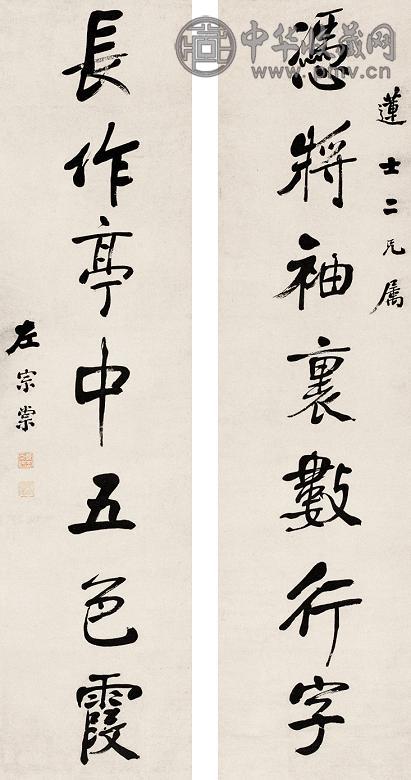 中华收藏网
www.omv.cn
蓮士二兄属
憑將袖裏數行字
長作亭中五色霞
左宗棠